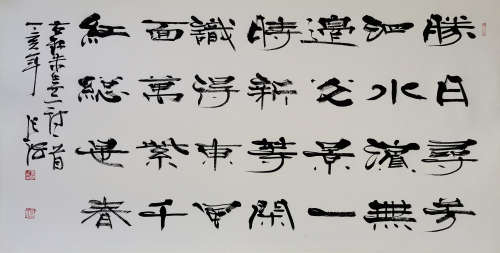 勝日尋芳
泗水濱無
邊光景一
時新等閑
識得東風
面萬紫千
紅總是春
右錄朱熹詩一首
丁亥年